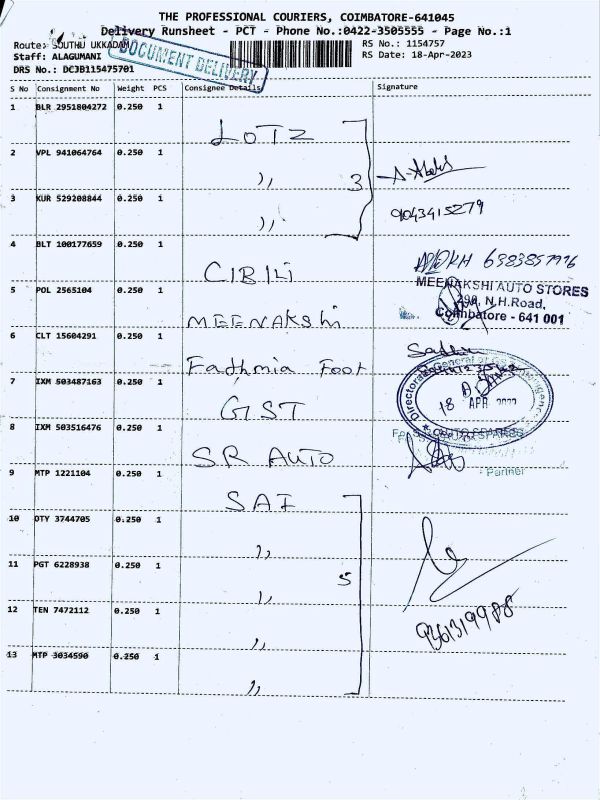 THE PROFESSIONAL COURIERS, COIMBATORE-641045
Delivery Runsheet - PCT - Phone No.:0422-3505555 - Page No.:1
Route: SOUTHU UKKADAM
RS No.: 1154757
Staff: ALAGUMANI
RS Date: 18-Apr-2023
DRS No.: DCJB115475701
DOCUMENT DELIVERY
S No Consignment No Weight PCS Consignee Details Signature
1 BLR 2951804272 0.250 1
LOTZ
2 VPL 941064764 0.250 1
,, 3
3 KUR 529208844 0.250 1
9043415279
,,
4 BLT 100177659 0.250 1
6383857976
CIBILI
MEENAKSHI AUTO STORES
5 POL 2565104 0.250 1
290, N.H.Road,
Coimbatore - 641 001
MEENAKShi
6 CLT 15604291 0.250 1
Fathmia Foot
7 IXM 503487163 0.250 1
18 APR
GIST
8 IXM 503516476 0.250 1
SR AUTO
Partner
9 MTP 1221104 0.250 1
SAI
10 OTY 3744705 0.250 1
,,
11 PGT 6228938 0.250 1
5
,,
12 TEN 7472112 0.250 1
9361319988
,,
13 MTP 3034590 0.250 1
,,